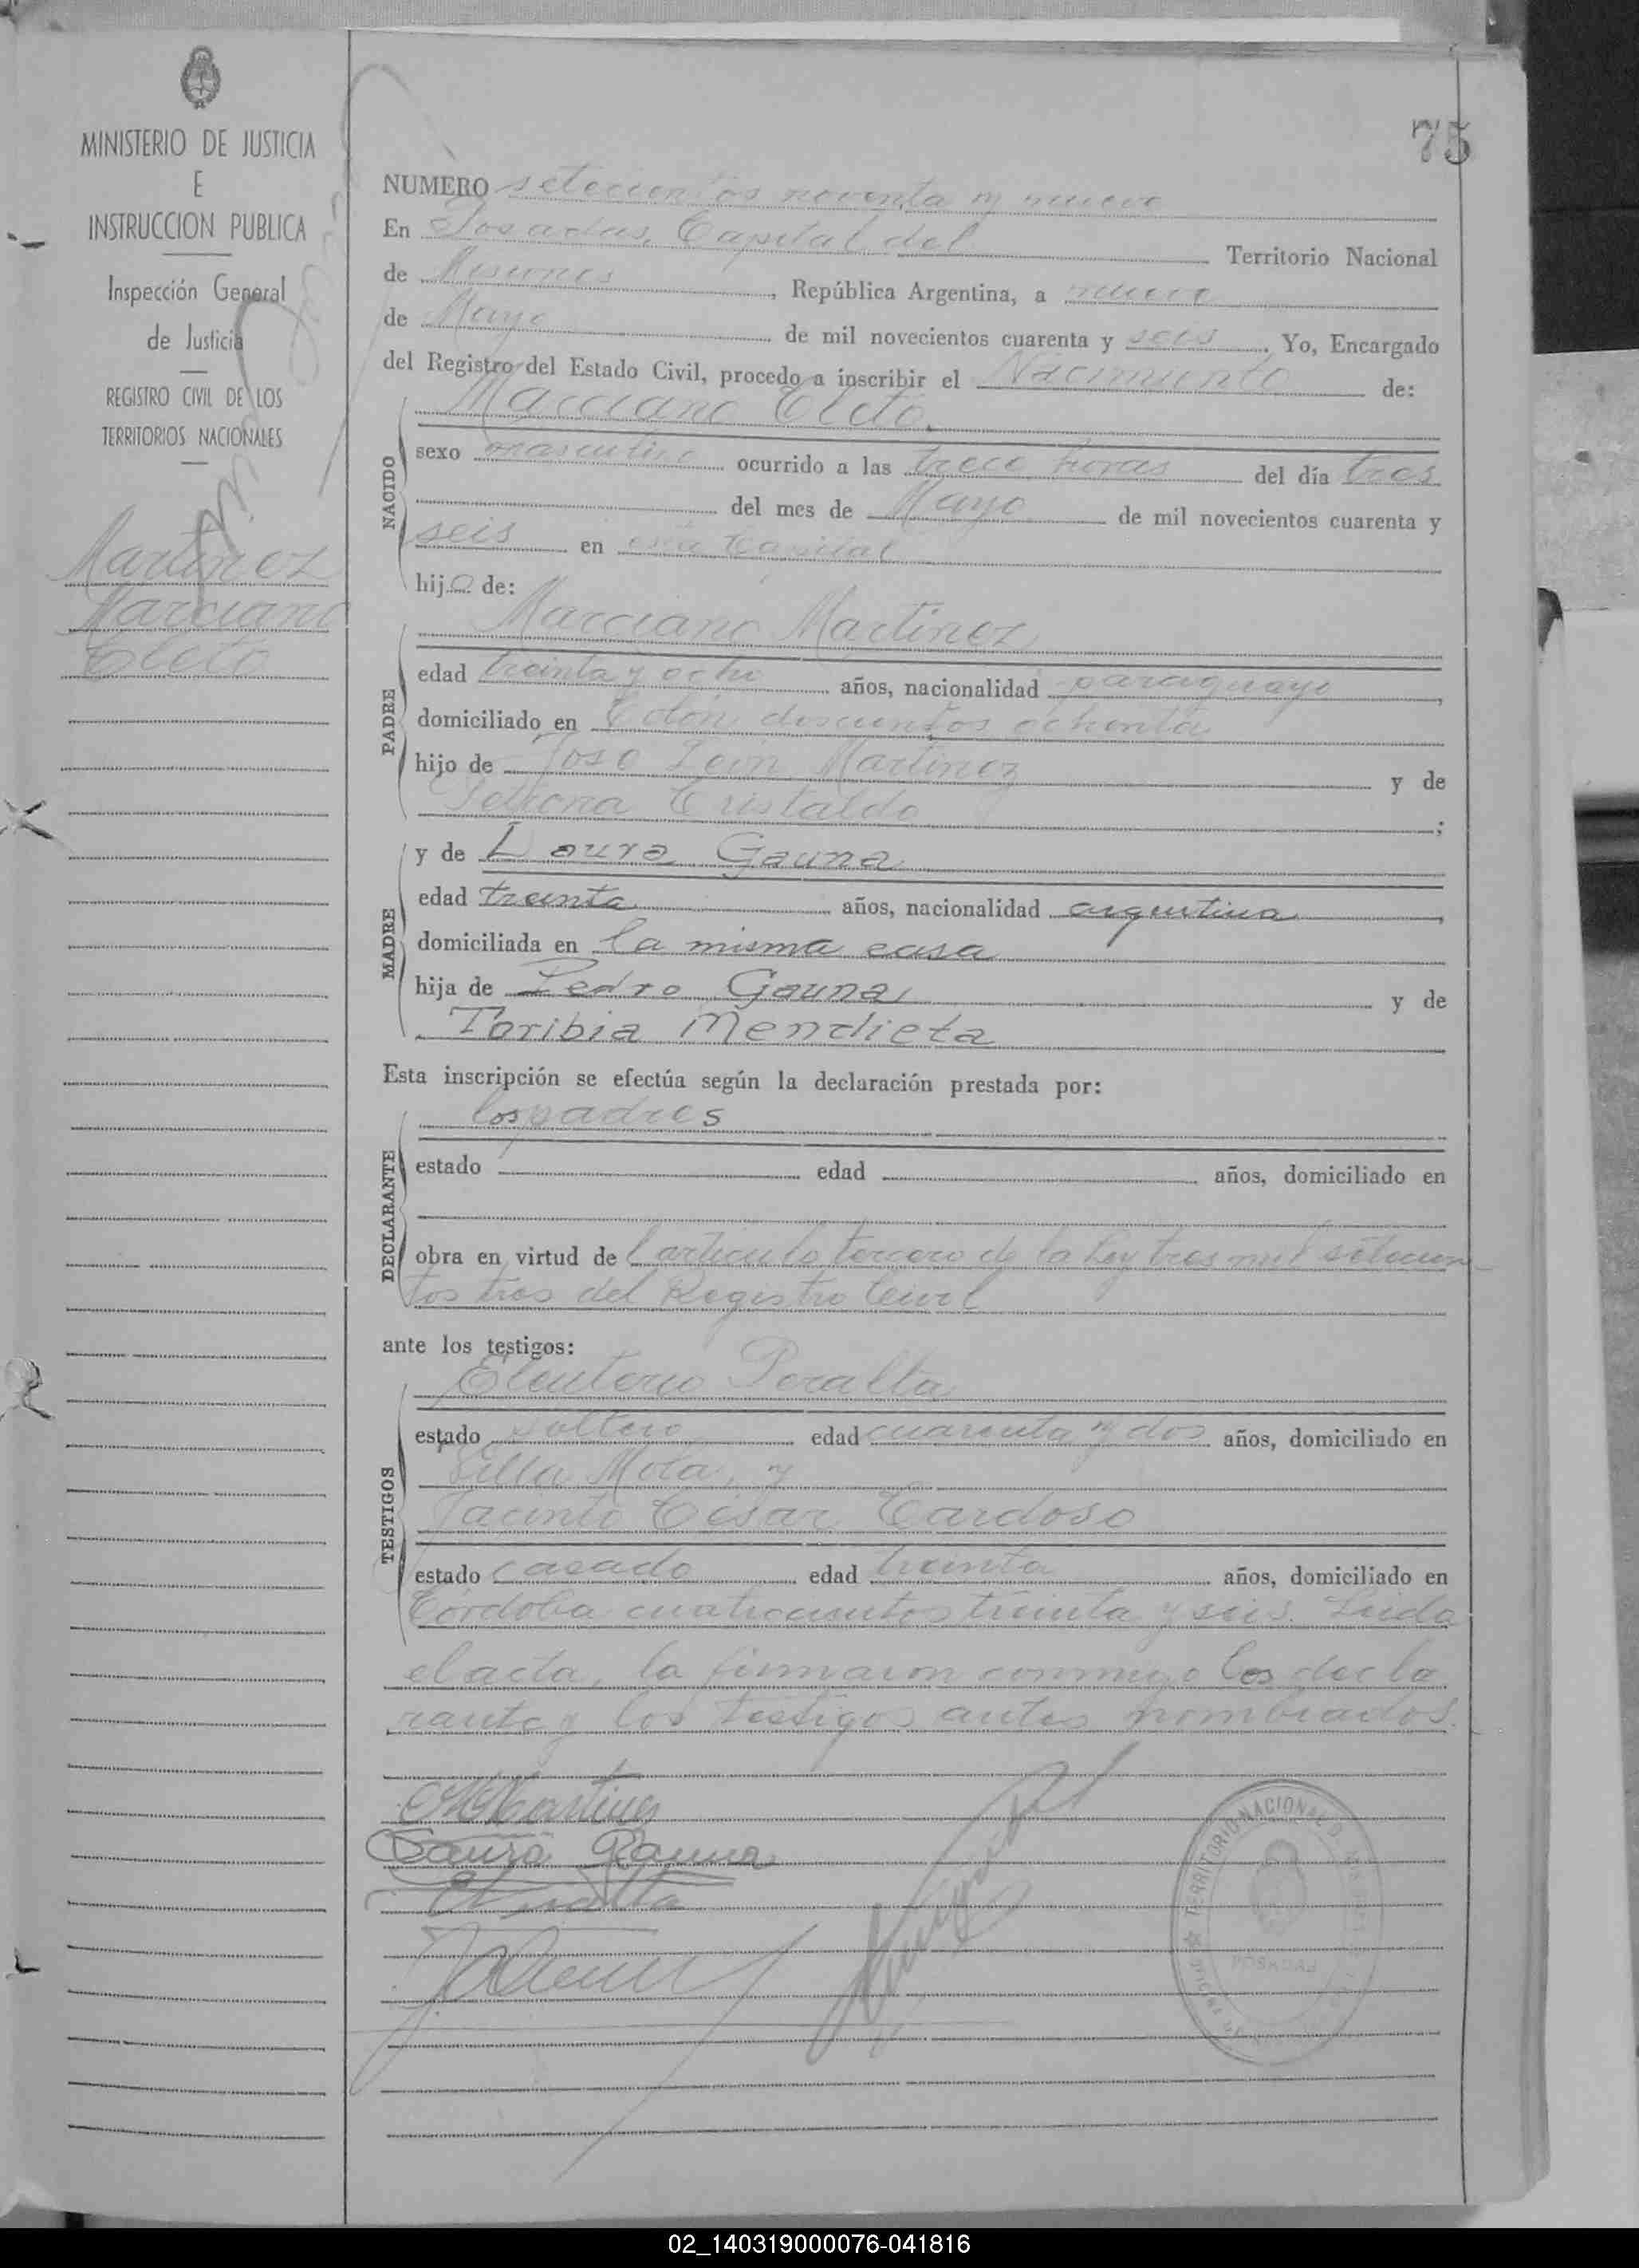 75
MINISTERIO DE JUSTICIA
E
INSTRUCCION PUBLICA
Inspección General
de Justicia
REGISTRO CIVIL DE LOS
TERRITORIOS NACIONALES
Martinez
Marciano
Cleto
NUMERO setecientos noventa y nueve
En Posadas, Capital del Territorio Nacional
de Misiones, República Argentina, a nueve
de Mayo de mil novecientos cuarenta y seis. Yo, Encargado
del Registro del Estado Civil, procedo a inscribir el Nacimiento de:
NACIDO
Marciano Cleto.
sexo masculino ocurrido a las trece horas del día tres
del mes de Mayo de mil novecientos cuarenta y
seis en esta Capital
hijo de:
PADRE
Marciano Martinez
edad treinta y ocho años, nacionalidad paraguayo,
domiciliado en Colón doscientos ochenta
hijo de José León Martinez y de
Petrona Cristaldo;
MADRE
y de Laura Gauna
edad treinta años, nacionalidad argentina,
domiciliada en la misma casa
hija de Pedro Gauna y de
Toribia Mendieta
Esta inscripción se efectúa según la declaración prestada por:
DECLARANTE
los padres
estado edad años, domiciliado en
obra en virtud del articulo tercero de la Ley tres mil setecien
tos tres del Registro Civil
ante los testigos:
TESTIGOS
Eleuterio Peralta
estado soltero edad cuarenta y dos años, domiciliado en
Villa Mola, y
Jacinto César Cardoso
estado casado edad treinta años, domiciliado en
Córdoba cuatrocientos treinta y seis. Leida
el acta, la firmaron conmigo los decla
rante y los testigos antes nombrados.
MMartinez
Laura Gauna
EPeralta
TERRITORIO NACIONAL DE MISIONES
POSADAS
02_140319000076-041816